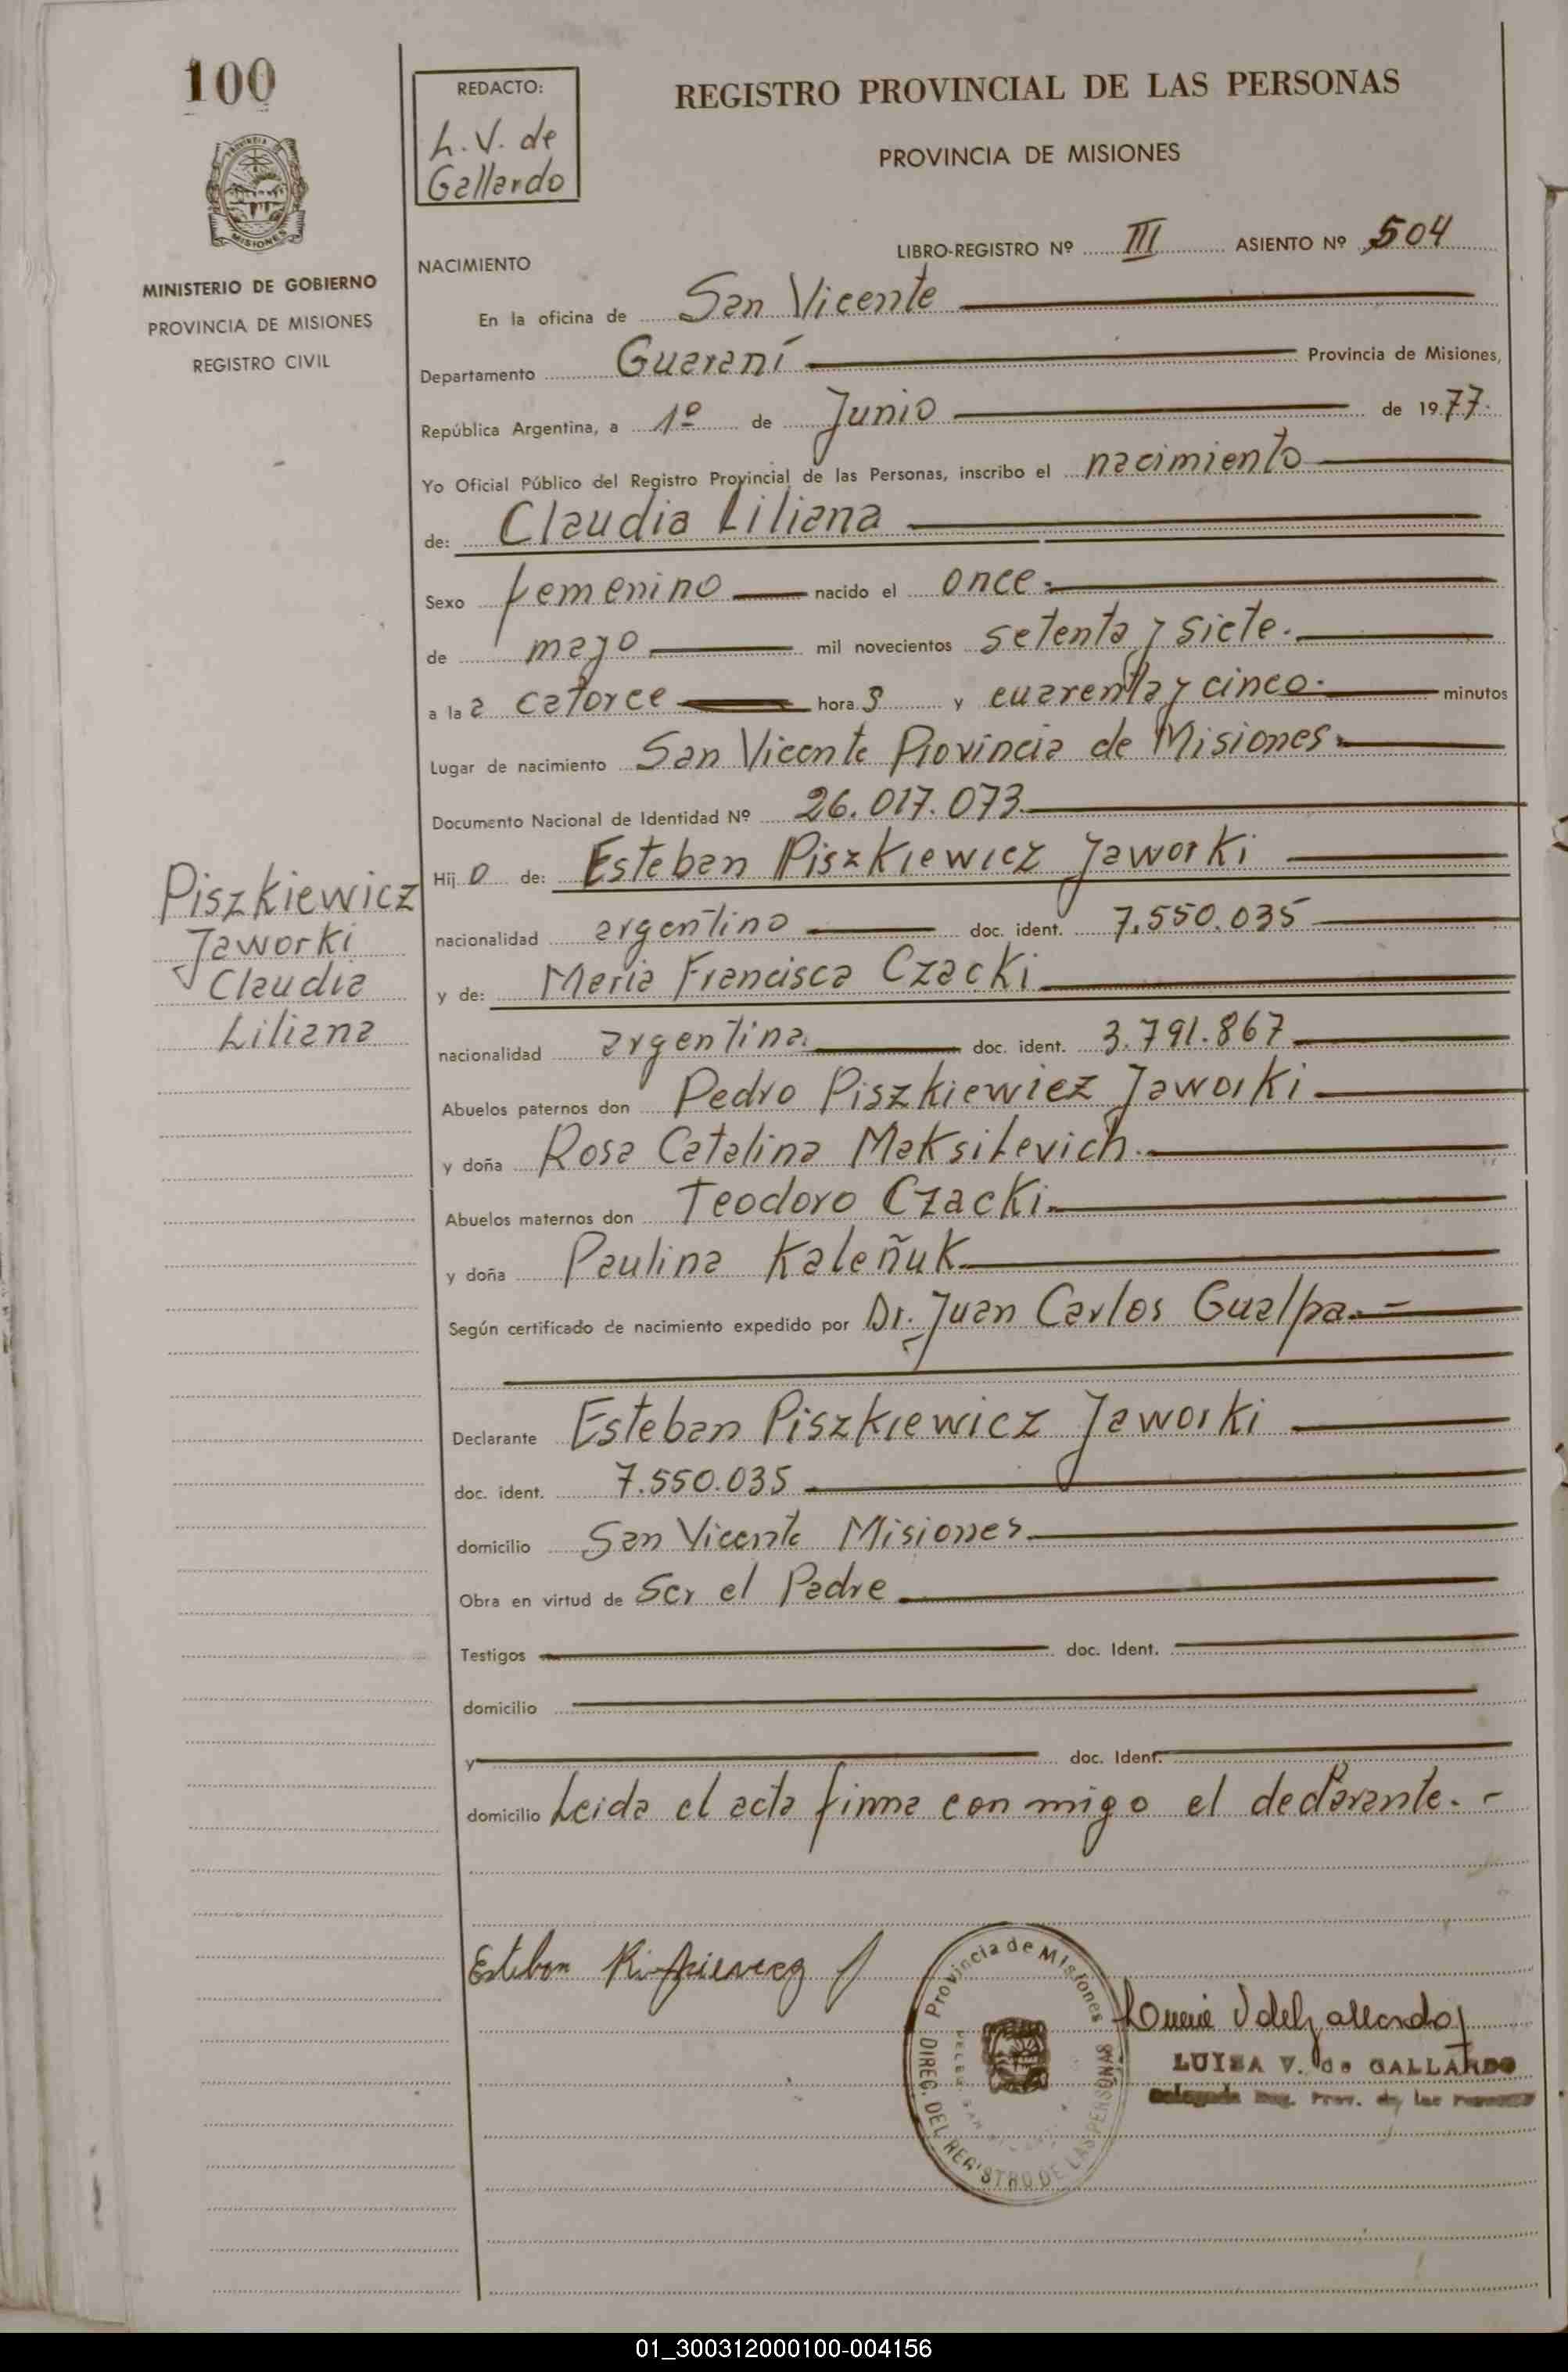 100
MISIONES
MINISTERIO DE GOBIERNO
PROVINCIA DE MISIONES
REGISTRO CIVIL
Piszkiewicz
Jaworki
Claudia
Liliana
REDACTO:
L. V. de
Gallardo
REGISTRO PROVINCIAL DE LAS PERSONAS
PROVINCIA DE MISIONES
LIBRO-REGISTRO Nº III ASIENTO Nº 504
NACIMIENTO
En la oficina de San Vicente
Departamento Guaraní Provincia de Misiones,
República Argentina, a 1º de Junio de 1977.
Yo Oficial Público del Registro Provincial de las Personas, inscribo el nacimiento
de: Claudia Liliana
Sexo femenino nacido el once
de mayo mil novecientos setenta y siete.
a la s catorce hora s y cuarenta y cinco. minutos
Lugar de nacimiento San Vicente Provincia de Misiones
Documento Nacional de Identidad Nº 26.017.073
Hij o de: Esteban Piszkiewicz Jaworki
nacionalidad argentino doc. ident. 7.550.035
y de: Maria Francisca Czacki
nacionalidad argentina. doc. ident. 3.791.867
Abuelos paternos don Pedro Piszkiewiez Jaworki
y doña Rosa Catalina Maksilevich.
Abuelos maternos don Teodoro Czacki
y doña Paulina Kaleñuk
Según certificado de nacimiento expedido por Dr. Juan Carlos Gualpa.
Declarante Esteban Piszkiewicz Jaworki
doc. ident. 7.550.035
domicilio San Vicente Misiones
Obra en virtud de Ser el Padre
Testigos doc. Ident.
domicilio
y doc. Ident.
domicilio Leida el acta firma con migo el declarante. -
Esteban
Provincia de Misiones
DIREC. DEL REGISTRO DE LAS PERSONAS
LUISA V. de GALLARDO
Delegada Reg. Prov. de las Personas
01_300312000100-004156